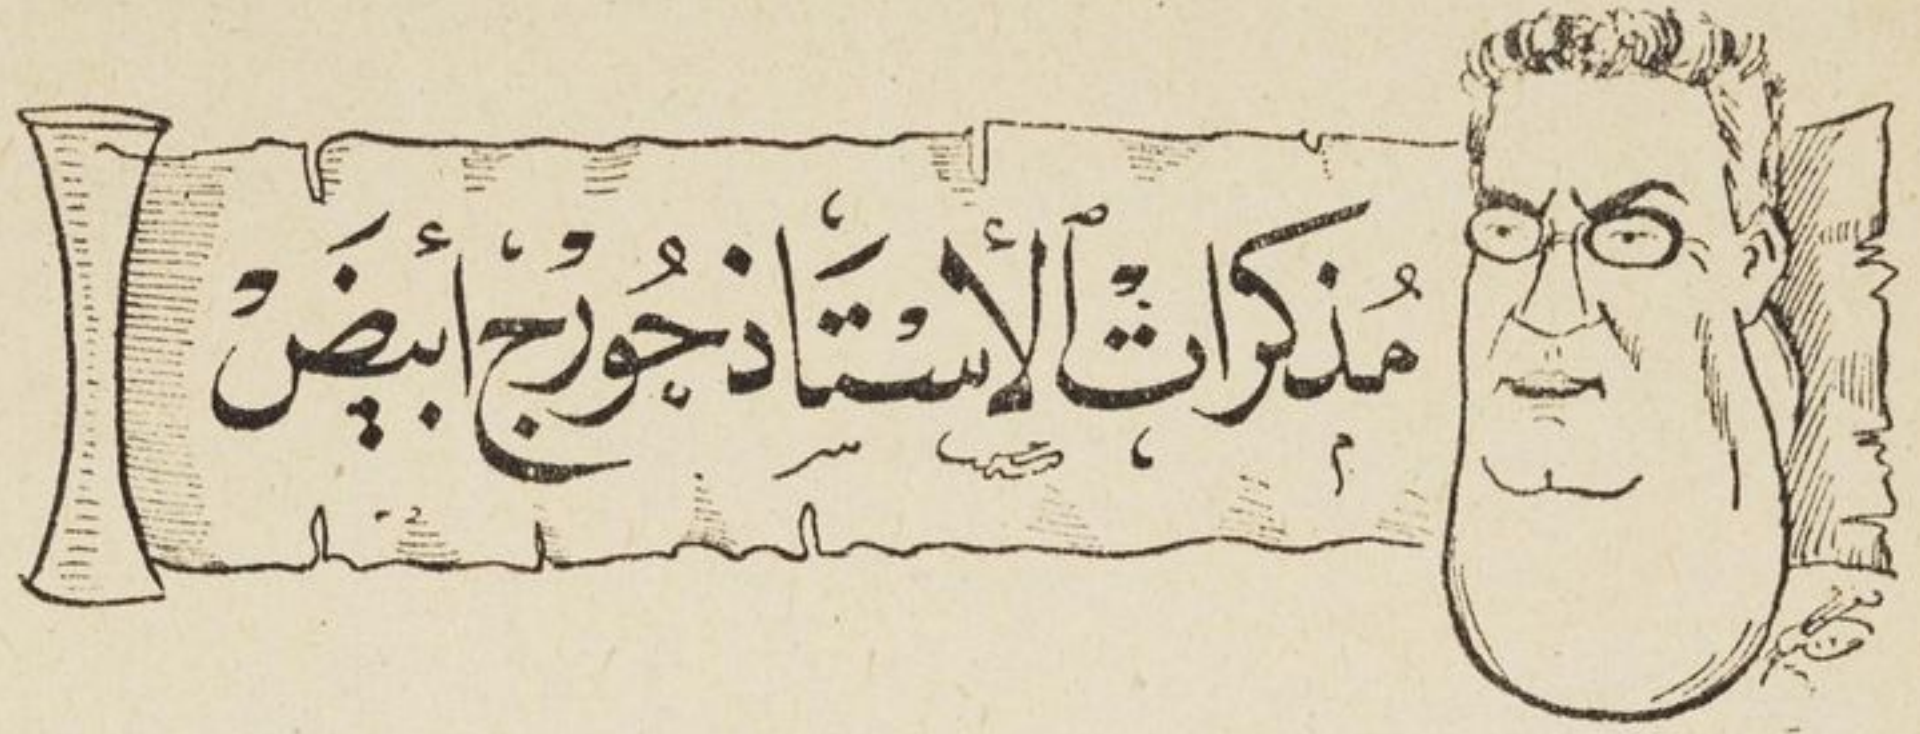 مذكرات الأستاذ جورج أبيض